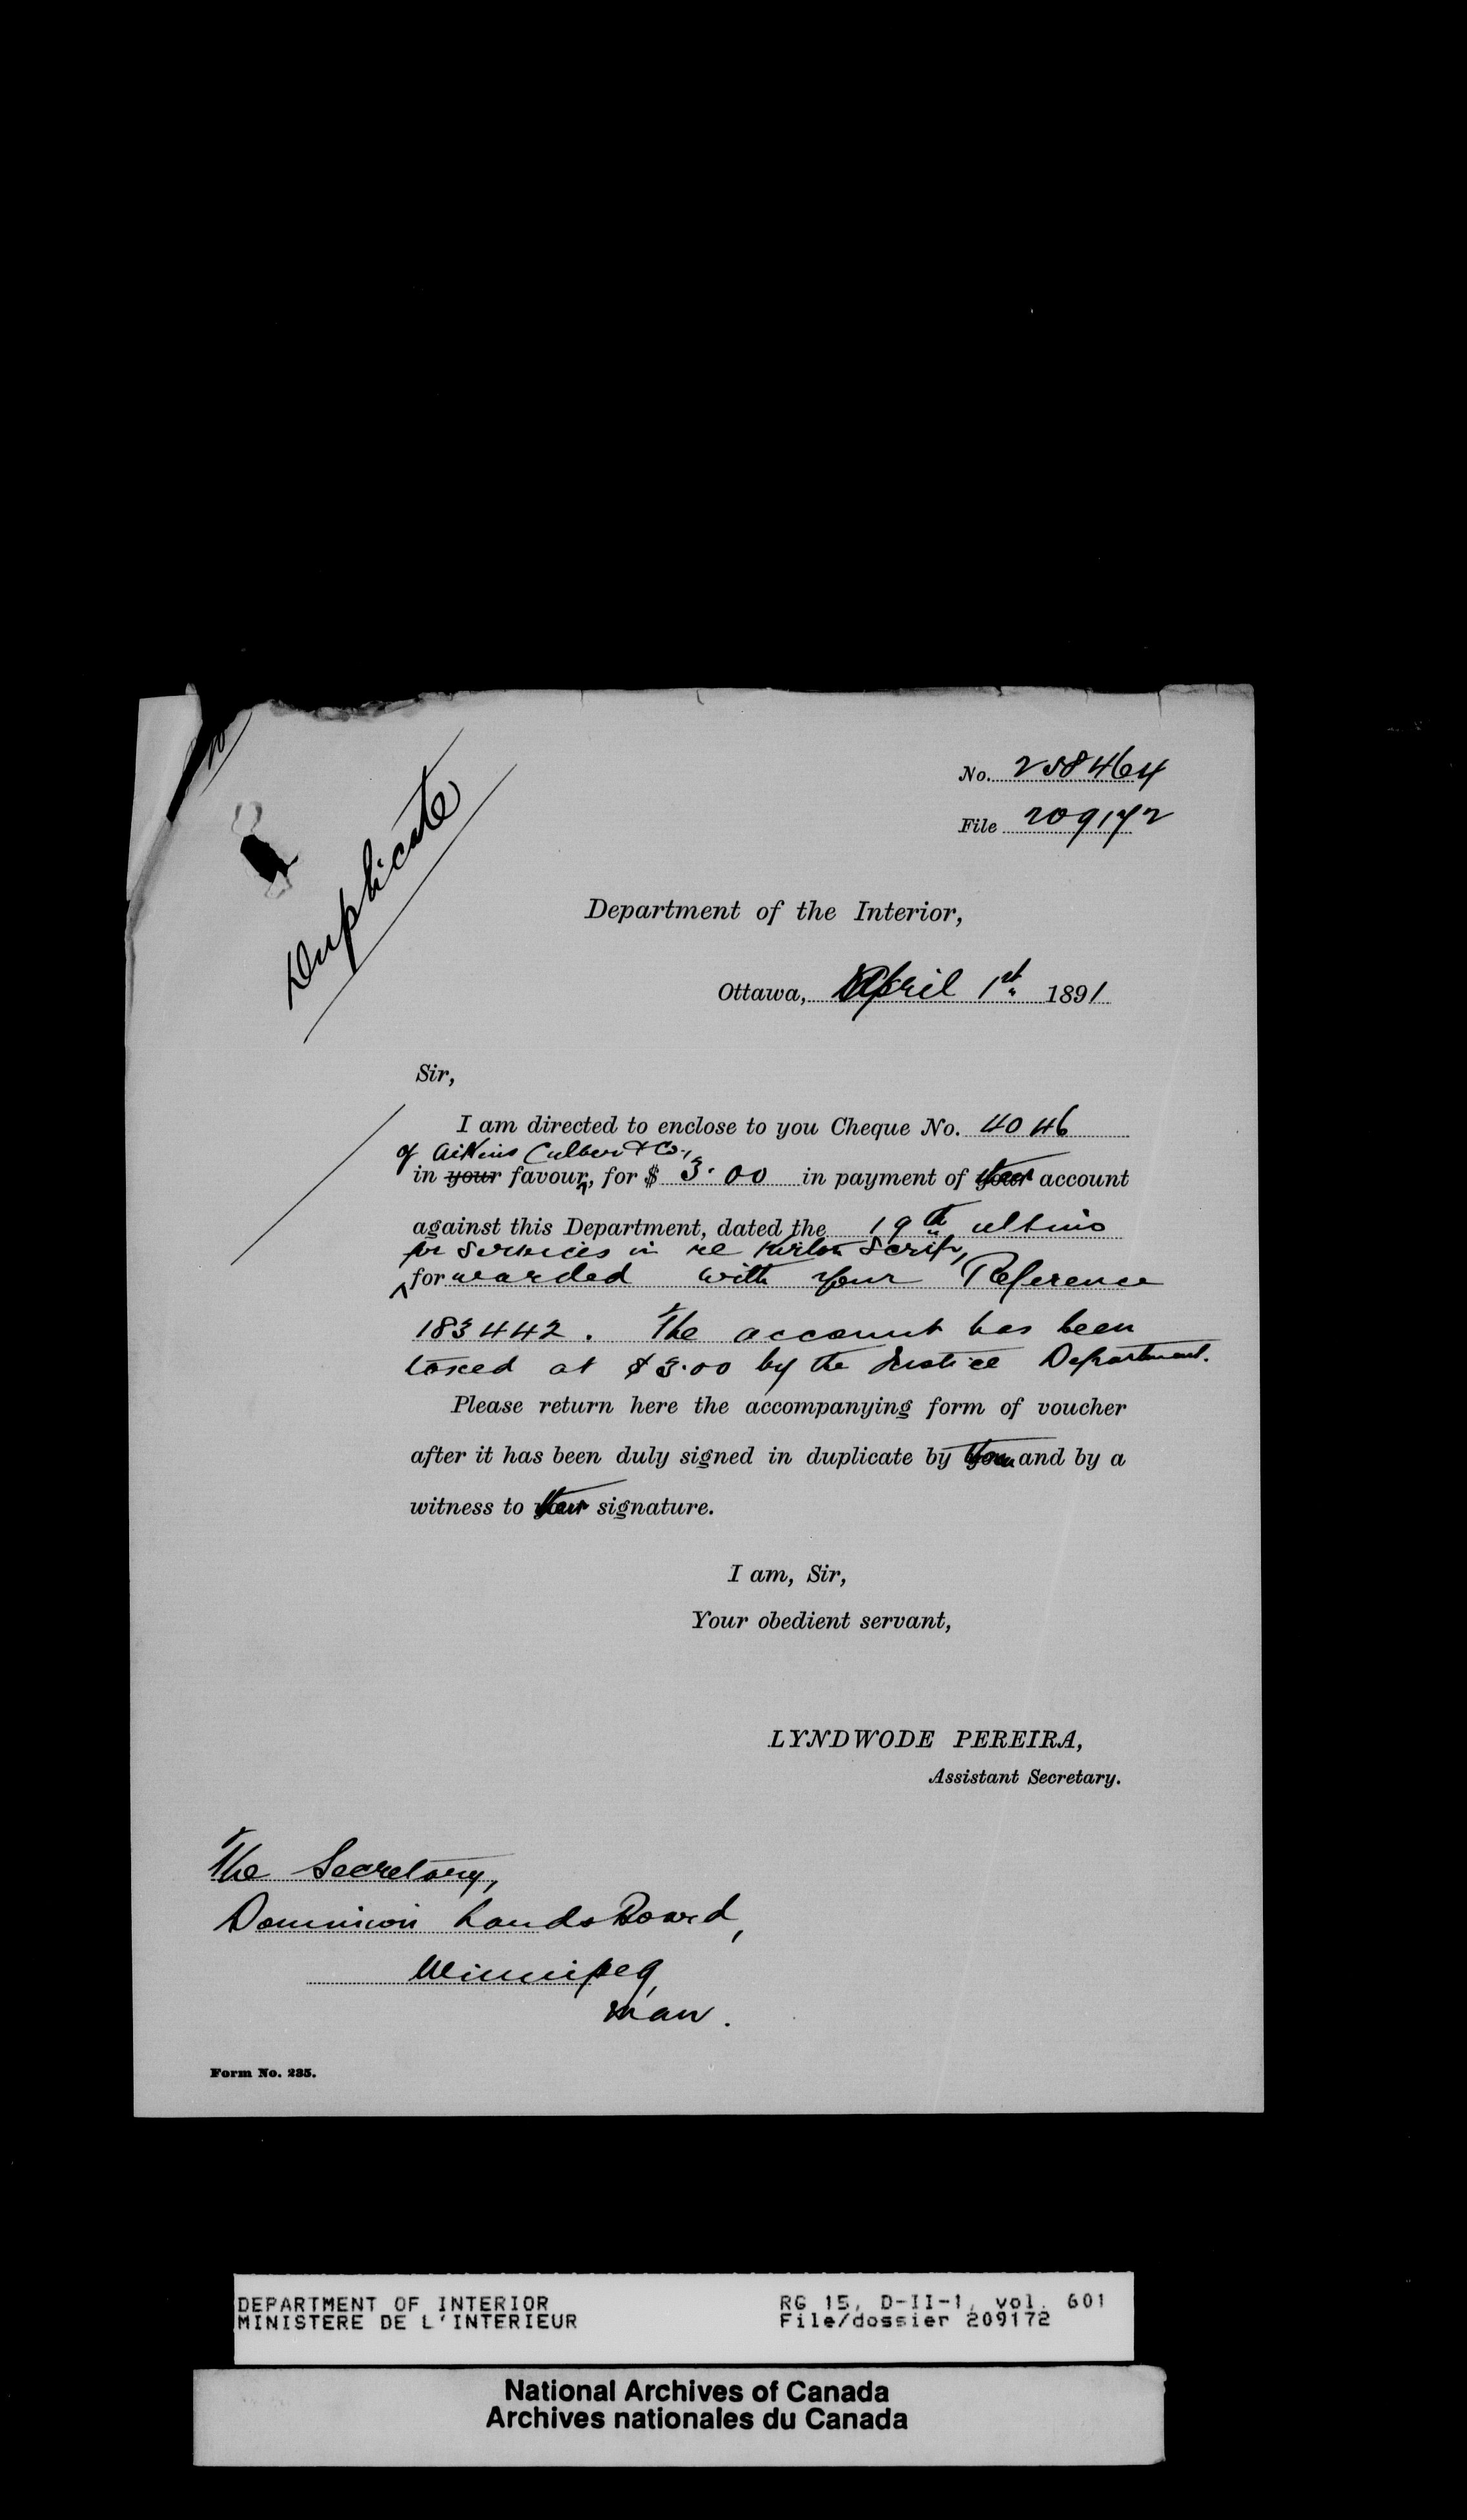 Duplicate
No. 258464
File 209172
Department of the Interior,
Ottawa, April 1st. 1891
Sir,
I am directed to enclose to you Cheque No. 4046
of Aikins Culver & Co.,
in your favour, for $ 3.00 in payment of their account
against this Department, dated the 19th ultimo
for services in re Scrip,
forwarded with your Reference
183442. The account has been
taxed at $3.00 by the Justice Department.
Please return here the accompanying form of voucher
after it has been duly signed in duplicate by them and by a
witness to their signature.
I am, Sir,
Your obedient servant,
LYNDWODE PEREIRA,
Assistant Secretary.
The Secretary,
Dominion Lands Board,
Winnipeg,
Man.
Form No. 235.
DEPARTMENT OF INTERIOR RG 15, D-II-1, vol. 601
MINISTERE DE L'INTERIEUR File/dossier 209172
National Archives of Canada
Archives nationales du Canada